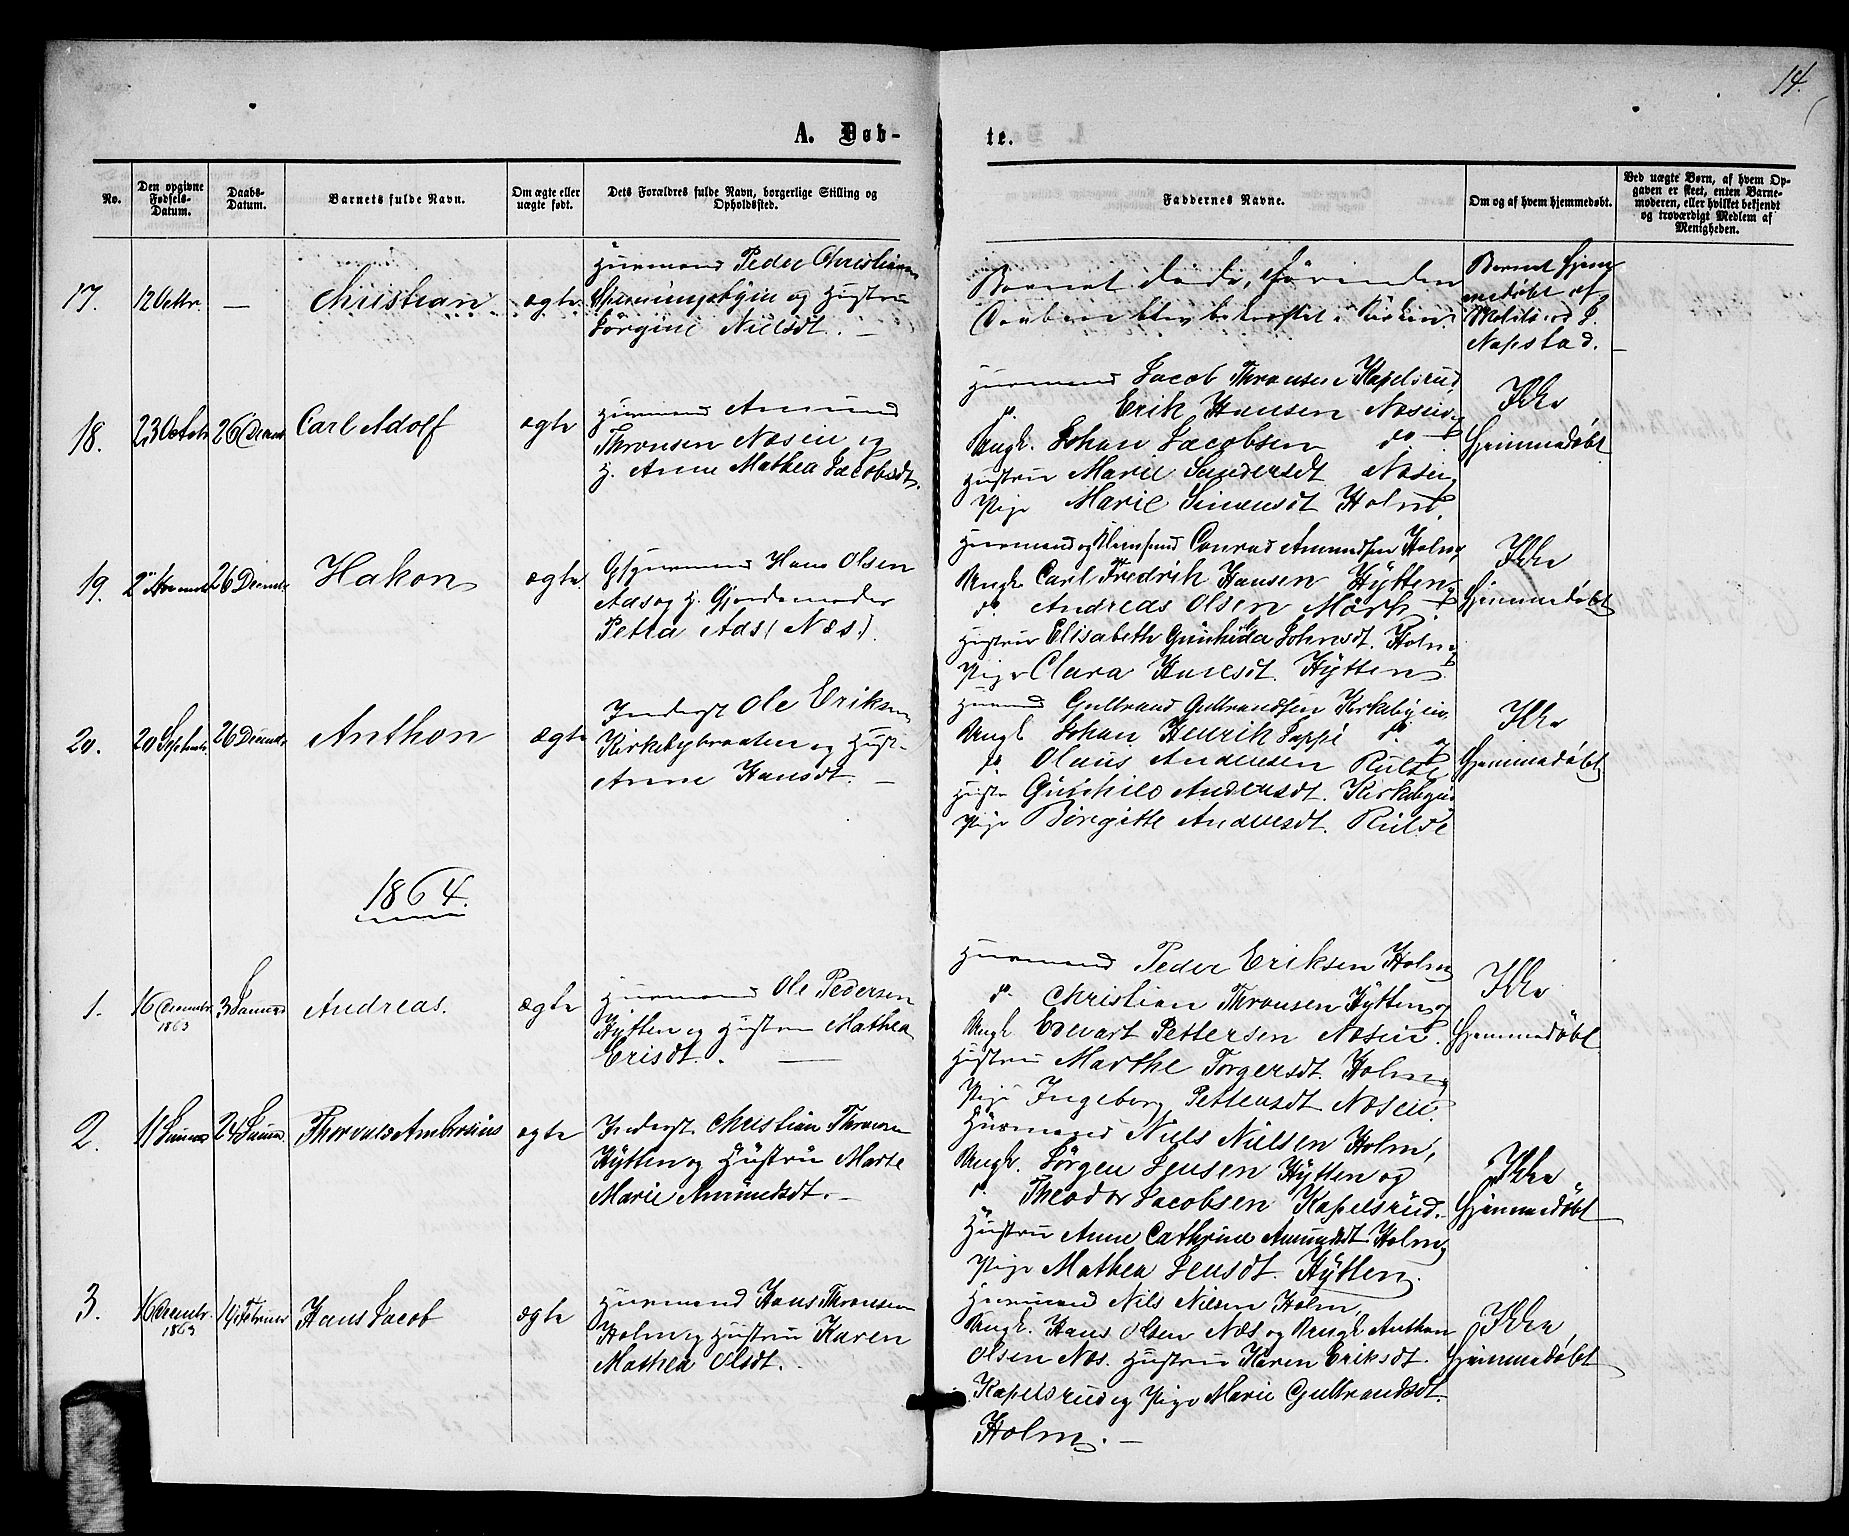 14.
A. Døb-
te.
No.
Den opgivne Fødsels-Datum.
Daabs-Datum.
Barnets fulde Navn.
Om ægte eller uægte født.
Dets Forældres fulde Navn, borgerlige Stilling og Opholdssted.
Faddernes Navne.
Om og af hvem hjemmedøbt.
Ved uægte Børn, af hvem Op-
gaven er skeet, enten Barne-
moderen, eller hvilket bekjendt
og troværdigt Medlem af
Menigheden.
17.
12 Octbr.
—
Christian
ægte
Huusmand Peder Christiansen
og Hustru
Jørgine Nielsdt. —
Barnet døde, førinden
Daaben blev bekræftet i Kirken.
Barnet hjem-
medøbt af
Napstad.
18.
23 Octobr
26 Decembr
Carl Adolf
ægte
Huusmand Amund
Thronsen Næseie og
H. Anne Mathea Jacobsdt.
Huusmand Jacob Thronsen Kapelsrud
do. Erik Hansen Næseie
Ungk. Johan Jacobsen do
Hustru Marie Gundersdt Næseie
Pige Marie Simensdt Holm.
Ikke
hjemmedøbt
19.
2den Novembr
26 Decembr
Hakon
ægte
Hans Olsen
Aas og H. Gjordemoder
Petra Aas (Næs).
Huusmand og Conrad Amundsen Holm,
Ungk. Carl Fredrik Hansen Hytten
do. Andreas Olsen Mørk
Hustru Elisabeth Gunhilda Johnsdt. Holm
Pige Clara Hansdt. Hytten
Ikke
hjemmedøbt
20.
20 Septembr.
26 Decembr
Anthon
ægte
Inderst Ole Eriksen
Kirkebybraaten og Hust.
Anne Hansdt. —
Huusmd Gulbrand Gulbrandsen Kirkebyeie,
Ungk Johan Henrik Jappe do.
do. Olaus Andersen Rulse
Hustr Gunhild Andersdt. Kirkebyeie
Pige Børgitte Andersdt. Rulse
Ikke
hjemmedøbt
1864.
1.
16 Decembr. 1863
3 Januar
Andreas.
ægte
Huusmand Ole Pedersen
Hytten og Hustru Mathea
Erisdt.
Huusmand Peder Eriksen Holm
do. Christian Thronsen Hytten og
Ungk Edevart Pettersen Næseie.
Hustru Marthe Torgersdt. Holm
Pige Ingeborg Pettersdt Næseie.
Ikke
hjemmedøbt.
2.
11 Januar
24 Januar
Thorvald Ambrosius
ægte
Inderst. Christian Thronsen
Hytten og Hustru Marte
Marie Amundsdt. —
Huusmand Niels Nielsen Holm,
Ungk. Jørgen Jensen Hytten og
do. Theodor Jacobsen Kapelsrud.
Hustru Anne Cathrine Amundsdt Holm
Pige Mathea Jensdt. Hytten.
Ikke
hjemmedøbt
3.
16 Decembr. 1863
14 Februar
Hans Jacob
ægte
Huusmand Hans Thronsen
Holm og Hustru Karen
Mathea Olsdt.
Huusmand Nils Nilsen Holm,
Ungk. Hans Olsen Næs og Ungk Anthon
Olsen Næs. Hustru Karen Eriksdt.
Kapelsrud og Pige Marie Gulbrandsdt.
Holm. —
Ikke
hjemmedøbt